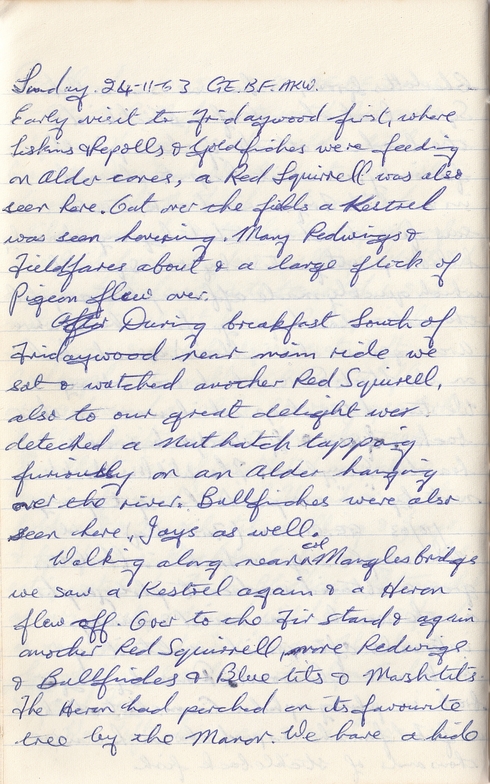 Sunday. 24-11-63 GE. BF. AKW.
Early visit to Fridaywood first, where
Siskins & Repolls & Goldfinches were feeding
on Alder cones, a Red Squirrell was also
seen here. Out over the fields a Kestrel
was seen hovering. Many Redwings &
Fieldfares about & a large flock of
Pigeon flew over.
During breakfast South of
Fridaywood near main ride we
sat & watched another Red Squirell,
also to our great delight we
deteched a Nuthatch tapping
furiously on an Alder hanging
over the river. Bullfinches were also
seen here, Jays as well.
Walking along near Mangles bridge
we saw a Kestrel again & a Heron
flew off. Over to the Fir stand & again
another Red Squirrell, more Redwings
& Bullfinches & Blue tits & Marsh tits.
The Heron had perched on its favourite
tree by the Manor. We have a hide